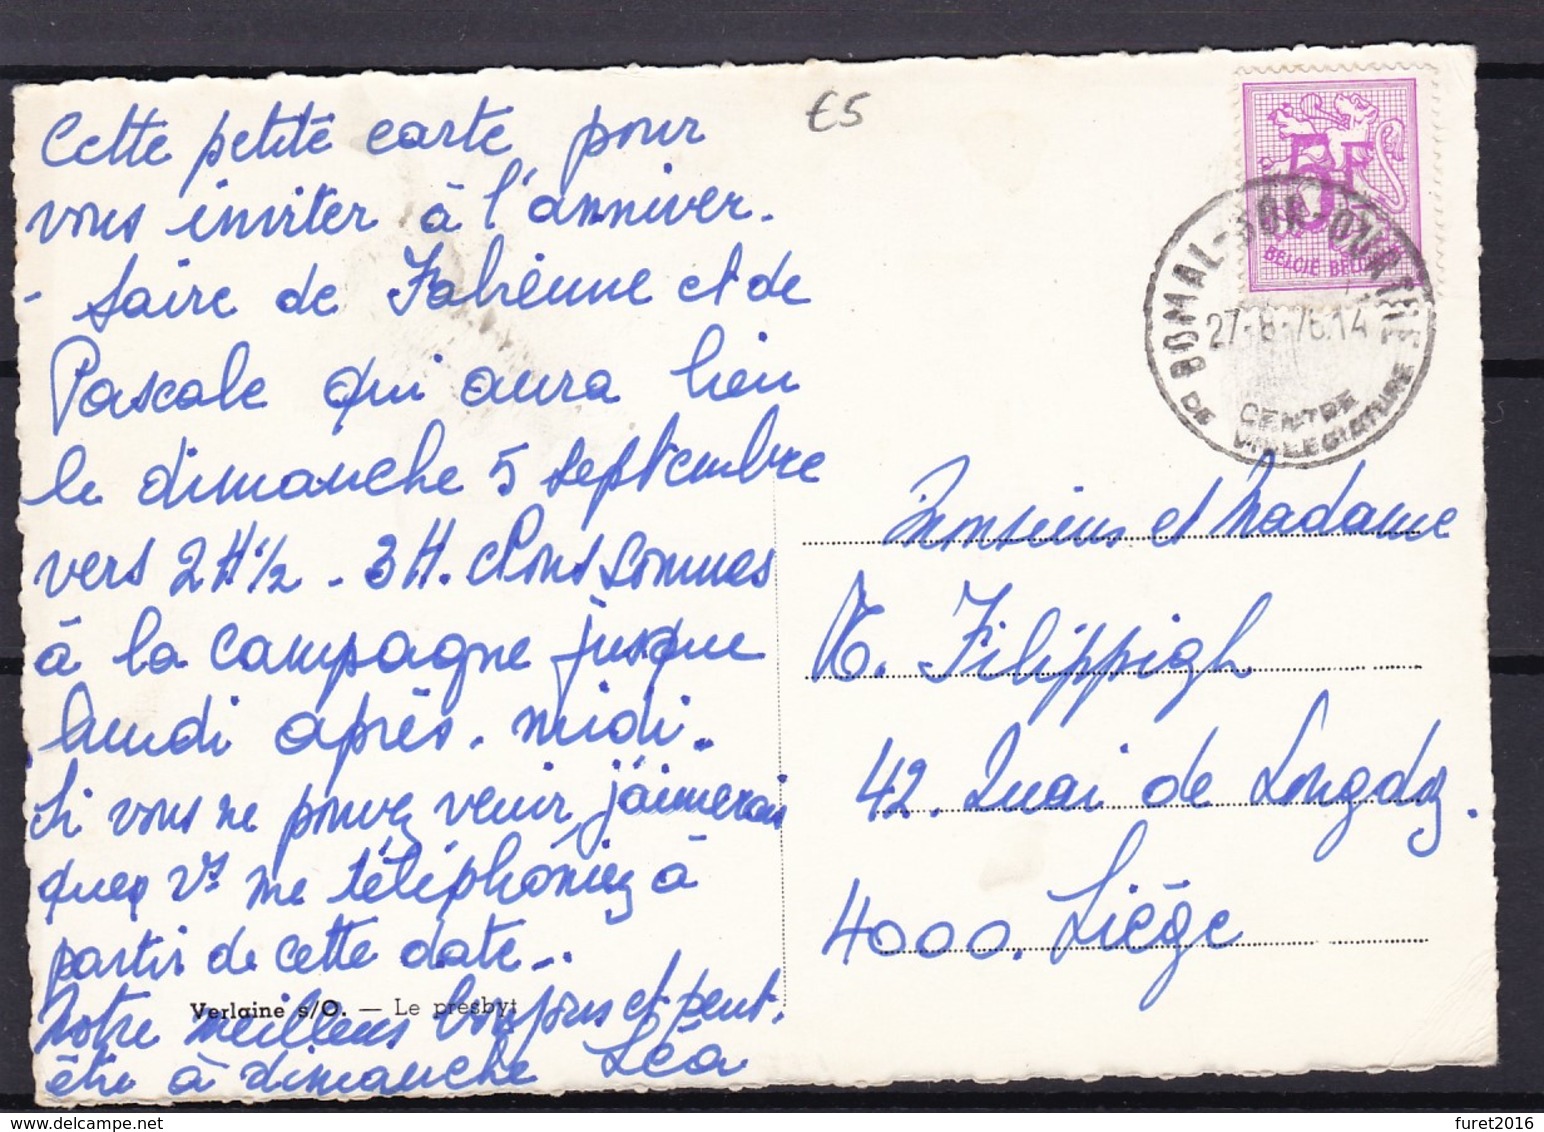 €5
Cette petite carte pour
vous inviter à l'anniver-
- saire de Fabienne et de
Pascale qui aura lieu
le dimanche 5 septembre
vers 2 H 1/2 - 3 H. Nous sommes
à la campagne jusque
lundi après-midi.
Si vous ne pouvez venir j'aimerais
que vs me téléphoniez à
partir de cette date...
Notre meilleurs bonjours et peut-
être à dimanche Léa
Verlaine s/O. — Le presbyt
5F
BELGIË BELGI
BOMAL-SUR-OURTHE
27-8-76.14
CENTRE
DE VILLEGIATURE
Monsieur et Madame
N. Filippigh
42. Quai de Longdoz.
4000. Liège
furet2016